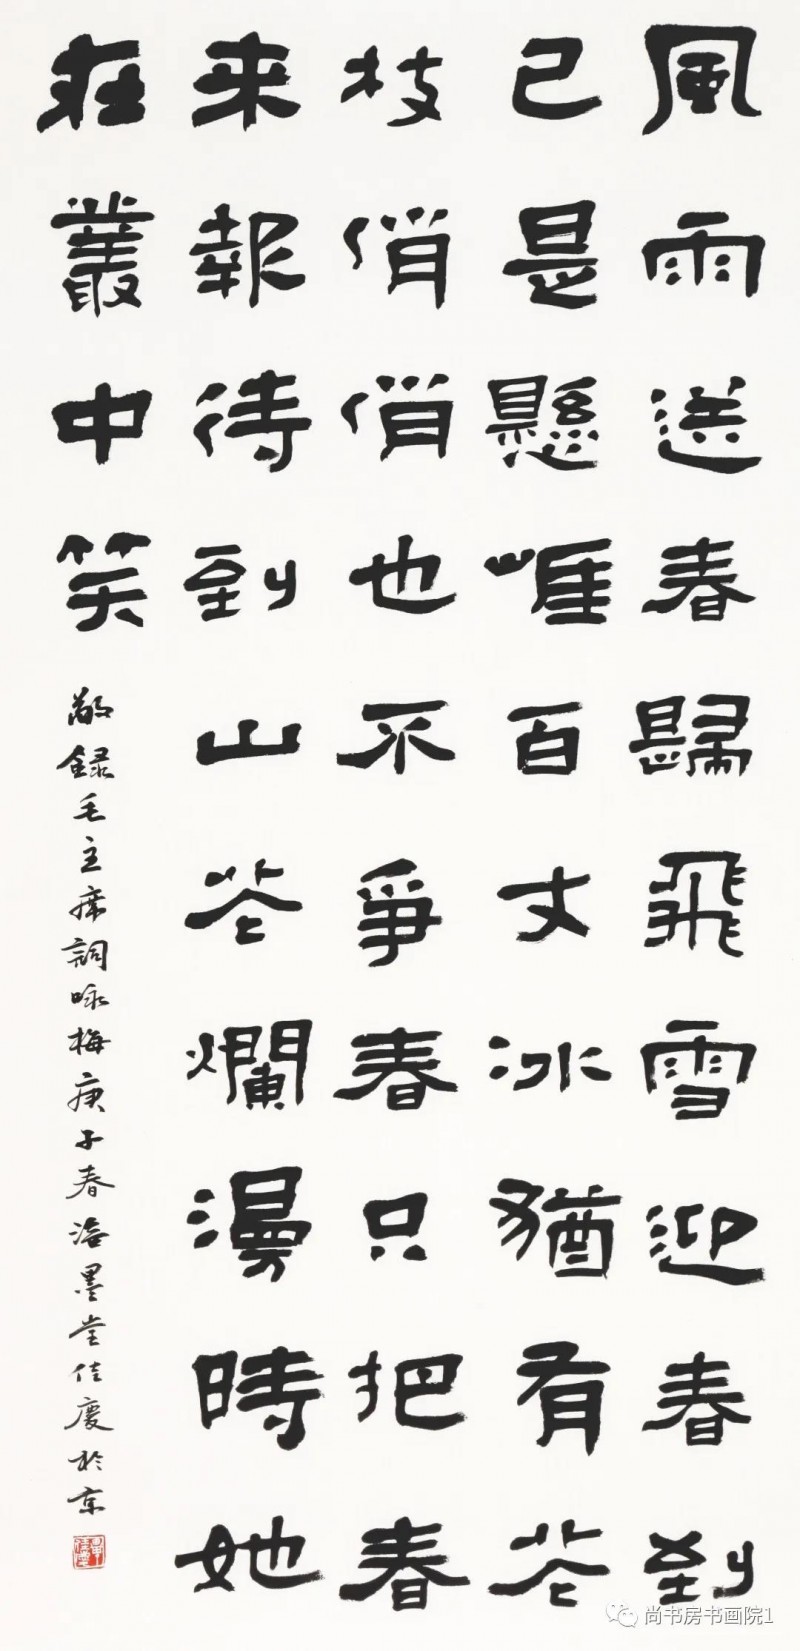 風雨送春歸飛雪迎春到
已是懸崕百丈冰猶有花
枝俏俏也不爭春只把春
来報待到山花爛漫時她
在叢中笑
敬録毛主席詞咏梅庚子春海墨堂佳慶於京
尚书房书画院1